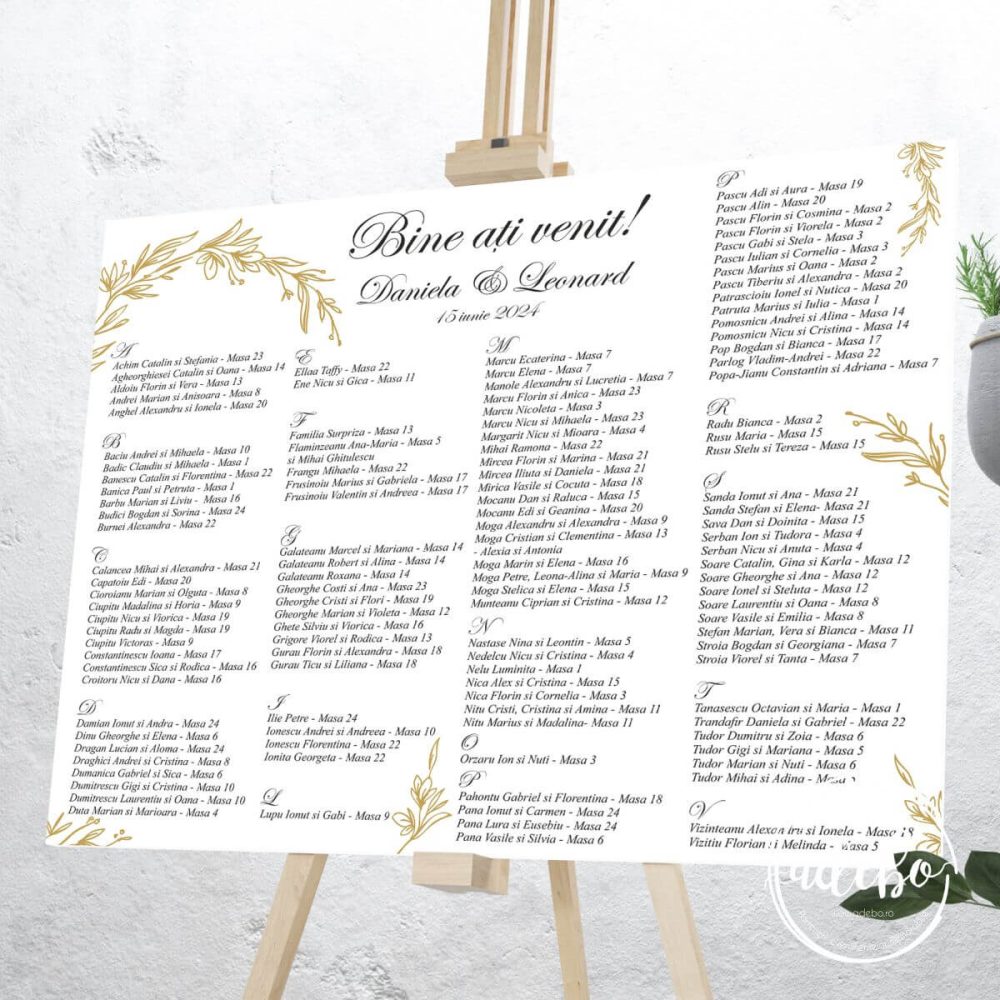 Bine ați venit!
Daniela & Leonard
15 iunie 2024
A
Achim Catalin si Stefania - Masa 23
Agheorghiesei Catalin si Oana - Masa 14
Aldoiu Florin si Vera - Masa 13
Andrei Marian si Anisoara - Masa 8
Anghel Alexandru si Ionela - Masa 20
B
Baciu Andrei si Mihaela - Masa 10
Badic Claudiu si Mihaela - Masa 1
Banescu Catalin si Florentina - Masa 22
Banica Paul si Petruta - Masa 1
Barbu Marian si Liviu - Masa 16
Budici Bogdan si Sorina - Masa 24
Burnei Alexandra - Masa 22
C
Calancea Mihai si Alexandra - Masa 21
Capatoiu Edi - Masa 20
Cioroianu Marian si Olguta - Masa 8
Ciupitu Madalina si Horia - Masa 9
Ciupitu Nicu si Viorica - Masa 19
Ciupitu Radu si Magda - Masa 19
Ciupitu Victoras - Masa 9
Constantinescu Ioana - Masa 17
Constantinescu Sica si Rodica - Masa 16
Croitoru Nicu si Dana - Masa 16
D
Damian Ionut si Andra - Masa 24
Dinu Gheorghe si Elena - Masa 6
Dragan Lucian si Aloma - Masa 24
Draghici Andrei si Cristina - Masa 8
Dumanica Gabriel si Sica - Masa 6
Dumitrescu Gigi si Cristina - Masa 10
Dumitrescu Laurentiu si Oana - Masa 10
Duta Marian si Marioara - Masa 4
E
Ellaa Taffy - Masa 22
Ene Nicu si Gica - Masa 11
F
Familia Surpriza - Masa 13
Flaminzeanu Ana-Maria - Masa 5
si Mihai Ghitulescu
Frangu Mihaela - Masa 22
Frusinoiu Marius si Gabriela - Masa 17
Frusinoiu Valentin si Andreea - Masa 17
G
Galateanu Marcel si Mariana - Masa 14
Galateanu Robert si Alina - Masa 14
Galateanu Roxana - Masa 14
Gheorghe Costi si Ana - Masa 23
Gheorghe Cristi si Flori - Masa 19
Gheorghe Marian si Violeta - Masa 12
Ghete Silviu si Viorica - Masa 16
Grigore Viorel si Rodica - Masa 13
Gurau Florin si Alexandra - Masa 18
Gurau Ticu si Liliana - Masa 18
I
Ilie Petre - Masa 24
Ionescu Andrei si Andreea - Masa 10
Ionescu Florentina - Masa 22
Ionita Georgeta - Masa 22
L
Lupu Ionut si Gabi - Masa 9
M
Marcu Ecaterina - Masa 7
Marcu Elena - Masa 7
Manole Alexandru si Lucretia - Masa 7
Marcu Florin si Anica - Masa 23
Marcu Nicoleta - Masa 3
Marcu Nicu si Mihaela - Masa 23
Margarit Nicu si Mioara - Masa 4
Mihai Ramona - Masa 22
Mircea Florin si Marina - Masa 21
Mircea Iliuta si Daniela - Masa 21
Mirica Vasile si Cocuta - Masa 18
Mocanu Dan si Raluca - Masa 15
Mocanu Edi si Geanina - Masa 20
Moga Alexandru si Alexandra - Masa 9
Moga Cristian si Clementina - Masa 13
- Alexia si Antonia
Moga Marin si Elena - Masa 16
Moga Petre, Leona-Alina si Maria - Masa 9
Moga Stelica si Elena - Masa 15
Munteanu Ciprian si Cristina - Masa 12
N
Nastase Nina si Leontin - Masa 5
Nedelcu Nicu si Cristina - Masa 4
Nelu Luminita - Masa 1
Nica Alex si Cristina - Masa 15
Nica Florin si Cornelia - Masa 3
Nitu Cristi, Cristina si Amina - Masa 11
Nitu Marius si Madalina- Masa 11
O
Orzaru Ion si Nuti - Masa 3
P
Pahontu Gabriel si Florentina - Masa 18
Pana Ionut si Carmen - Masa 24
Pana Lura si Eusebiu - Masa 24
Pana Vasile si Silvia - Masa 6
P
Pascu Adi si Aura - Masa 19
Pascu Alin - Masa 20
Pascu Florin si Cosmina - Masa 2
Pascu Florin si Viorela - Masa 2
Pascu Gabi si Stela - Masa 3
Pascu Iulian si Cornelia - Masa 3
Pascu Marius si Oana - Masa 2
Pascu Tiberiu si Alexandra - Masa 2
Patrascioiu Ionel si Nutica - Masa 20
Patruta Marius si Iulia - Masa 1
Pomosnicu Andrei si Alina - Masa 14
Pomosnicu Nicu si Cristina - Masa 14
Pop Bogdan si Bianca - Masa 17
Parlog Vladim-Andrei - Masa 22
Popa-Jianu Constantin si Adriana - Masa 7
R
Radu Bianca - Masa 2
Rusu Maria - Masa 15
Rusu Stelu si Tereza - Masa 15
S
Sanda Ionut si Ana - Masa 21
Sanda Stefan si Elena- Masa 21
Sava Dan si Doinita - Masa 15
Serban Ion si Tudora - Masa 4
Serban Nicu si Anuta - Masa 4
Soare Catalin, Gina si Karla - Masa 12
Soare Gheorghe si Ana - Masa 12
Soare Ionel si Steluta - Masa 12
Soare Laurentiu si Oana - Masa 8
Soare Vasile si Emilia - Masa 8
Stefan Marian, Vera si Bianca - Masa 11
Stroia Bogdan si Georgiana - Masa 7
Stroia Viorel si Tanta - Masa 7
T
Tanasescu Octavian si Maria - Masa 1
Trandafir Daniela si Gabriel - Masa 22
Tudor Dumitru si Zoia - Masa 6
Tudor Gigi si Mariana - Masa 5
Tudor Marian si Nuti - Masa 6
Tudor Mihai si Adina - Masa
V
Vizinteanu Alexandru si Ionela - Masa 18
Vizitiu Florian si Melinda - Masa 5
adebo